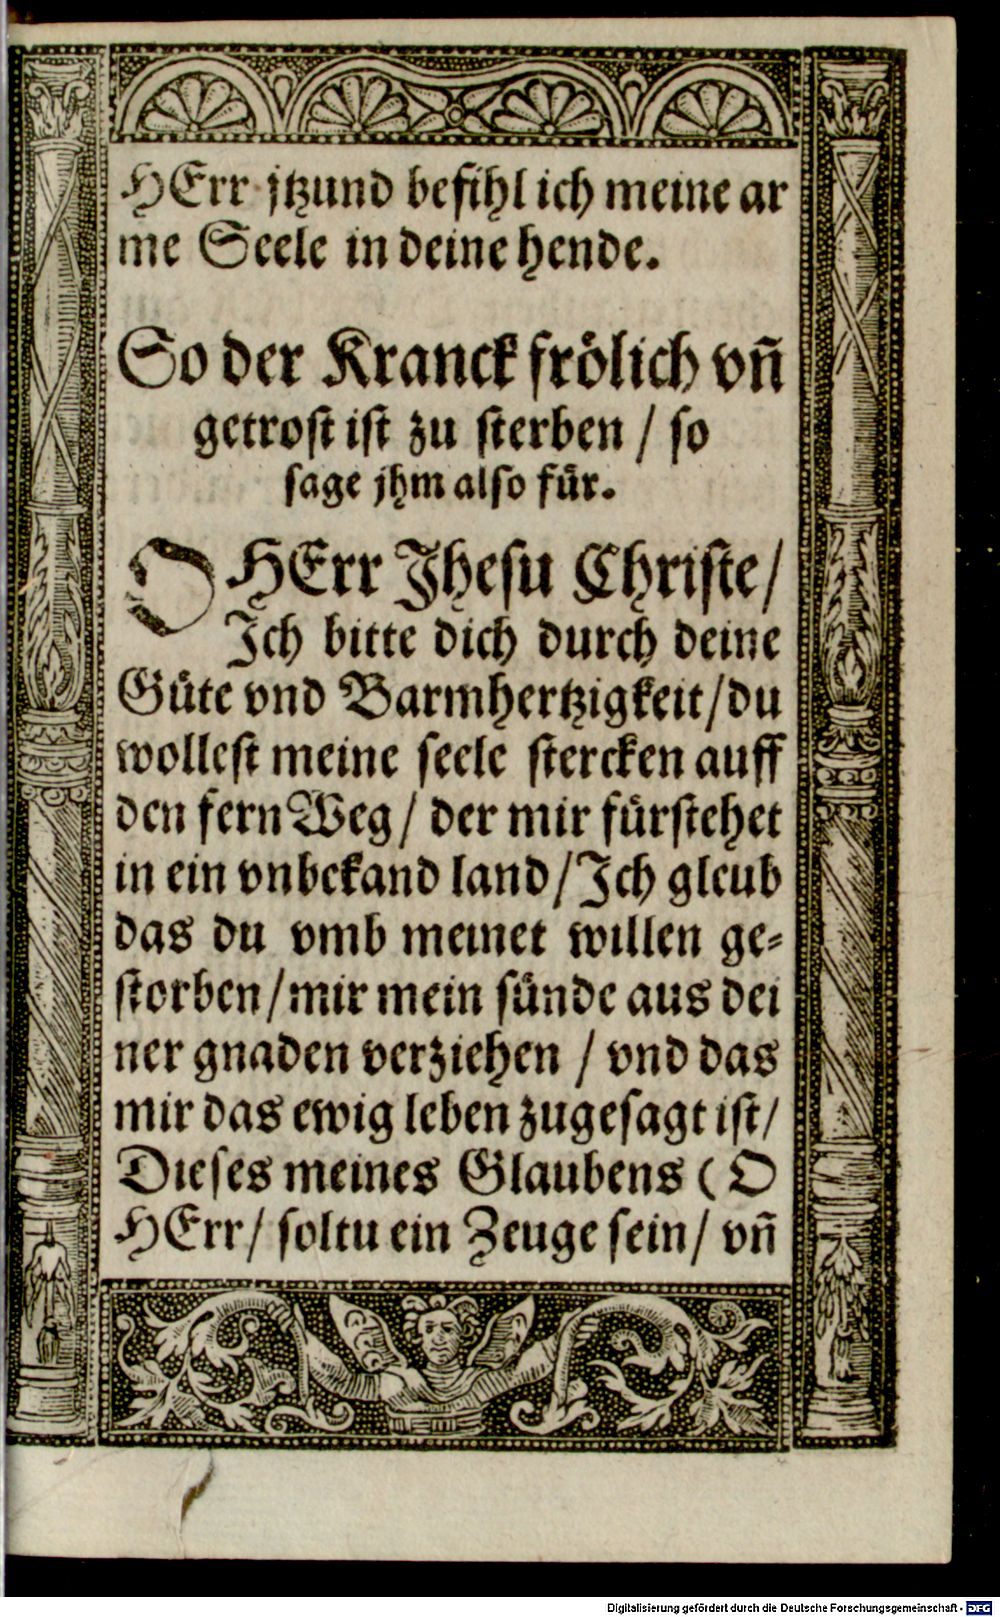 HErr jtzund befihl ich meine ar
me Seele in deine hende.
So der Kranck frölich vn̄
getrost ist zu sterben / so
sage jhm also für.
O HErr Jhesu Christe/
Ich bitte dich durch deine
Güte vnd Barmhertzigkeit/du
wollest meine seele stercken auff
den fern Weg/ der mir fürstehet
in ein vnbekand land/Ich gleub
das du vmb meinet willen ge⸗
storben/mir mein sünde aus dei
ner gnaden verziehen / vnd das
mir das ewig leben zugesagt ist/
Dieses meines Glaubens (O
HErr/ soltu ein Zeuge sein/ vn̄
Digitalisierung gefördert durch die Deutsche Forschungsgemeinschaft - DFG